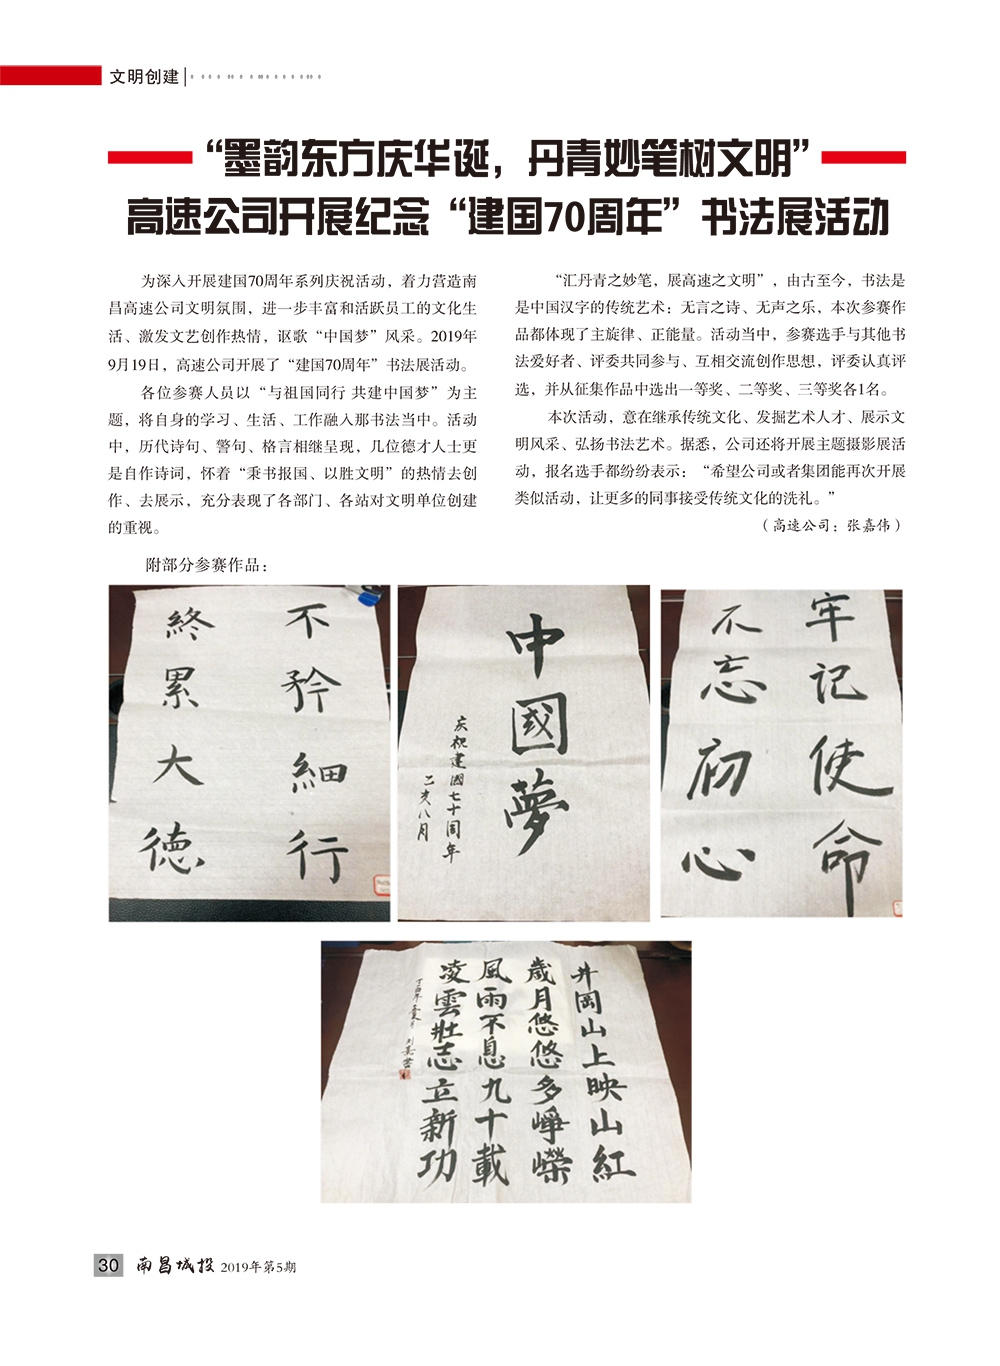 文明创建
“墨韵东方庆华诞，丹青妙笔树文明”
高速公司开展纪念“建国70周年”书法展活动
为深入开展建国70周年系列庆祝活动，着力营造南
昌高速公司文明氛围，进一步丰富和活跃员工的文化生
活、激发文艺创作热情，讴歌“中国梦”风采。2019年
9月19日，高速公司开展了“建国70周年”书法展活动。
各位参赛人员以“与祖国同行 共建中国梦”为主
题，将自身的学习、生活、工作融入那书法当中。活动
中，历代诗句、警句、格言相继呈现，几位德才人士更
是自作诗词，怀着“秉书报国、以胜文明”的热情去创
作、去展示，充分表现了各部门、各站对文明单位创建
的重视。
“汇丹青之妙笔，展高速之文明”，由古至今，书法是
是中国汉字的传统艺术：无言之诗、无声之乐，本次参赛作
品都体现了主旋律、正能量。活动当中，参赛选手与其他书
法爱好者、评委共同参与、互相交流创作思想，评委认真评
选，并从征集作品中选出一等奖、二等奖、三等奖各1名。
本次活动，意在继承传统文化、发掘艺术人才、展示文
明风采、弘扬书法艺术。据悉，公司还将开展主题摄影展活
动，报名选手都纷纷表示：“希望公司或者集团能再次开展
类似活动，让更多的同事接受传统文化的洗礼。”
（高速公司：张嘉伟）
附部分参赛作品：
不矜細行
終累大德
中國夢
庆祝建國七十周年
八月
牢记使命
不忘初心
井岡山上映山紅
歲月悠悠多崢嶸
風雨不息九十載
凌雲壯志立新功
30 南昌城投 2019年第5期